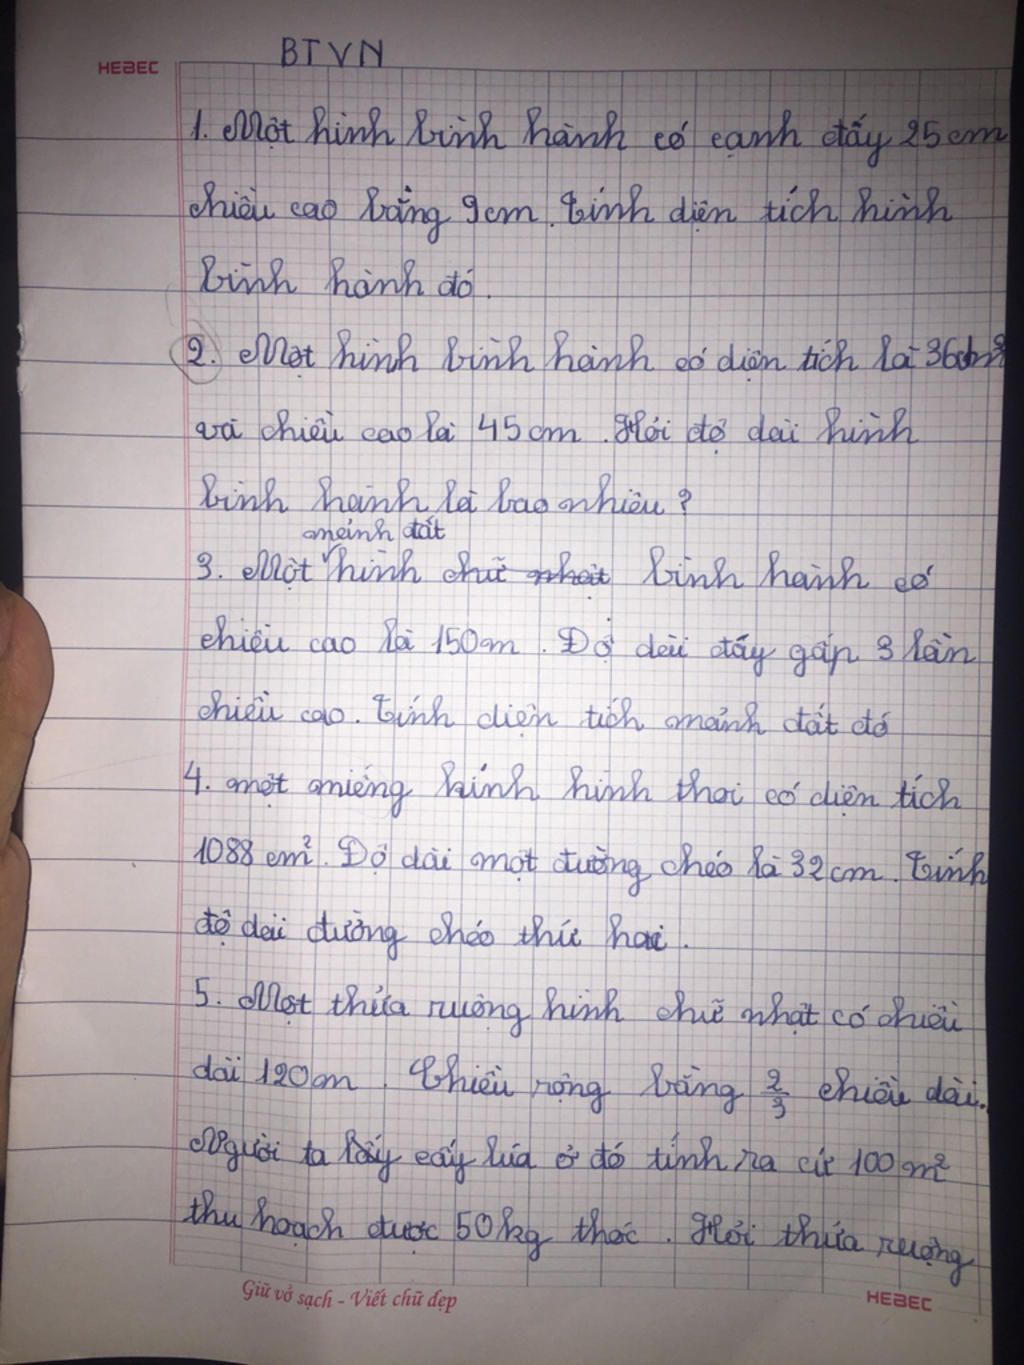 BTVN
HEBEC
1. Một hình bình hành có cạnh đấy 25cm
chiều cao bằng 9cm. Tính diện tích hình
bình hành đó.
2. Một hình bình hành có diện tích là
và chiều cao là 45cm. Hỏi độ dài hình
bình hành là bao nhiêu?
mảnh đất
3. Một hình chữ nhật bình hành có
chiều cao là 150m. Độ dài đáy gấp 3 lần
chiều cao. Tính diện tích mảnh đất đó
4. một miếng kính hình thoi có diện tích
1088 cm². Độ dài một đường chéo là 32cm. Tính
độ dài đường chéo thứ hai.
5. Một thửa ruộng hình chữ nhật có chiều
dài 120m. Chiều rộng bằng 2/3 chiều dài.
Người ta lấy cấy lúa ở đó tính ra cứ 100m²
thu hoạch được 50kg thóc. Hỏi thửa ruộng
Giữ vở sạch - Viết chữ đẹp
HEBEC